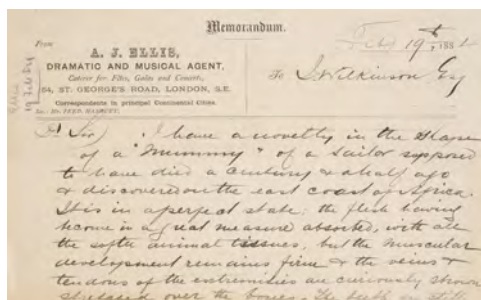 Memorandum.
From
A. J. ELLIS,
DRAMATIC AND MUSICAL AGENT,
Caterer for Fêtes, Galas and Concerts,
54, ST. GEORGE'S ROAD, LONDON, S.E.
Correspondents in principal Continental Cities.
Feby 19th, 188
To J. Wilkinson Esq
19 Feb 84
Dr Sir) I have a novelty in the shape
of a "Mummy" of a sailor supposed
to have died a century & a half ago
& discovered on the east coast of Africa.
It is in a perfect state; the flesh having
become in a great measure absorbed, with all
the softer animal tissues, but the muscular
development remains firm & the veins &
tendons of the extremities are curiously shown
over the bones. The teeth